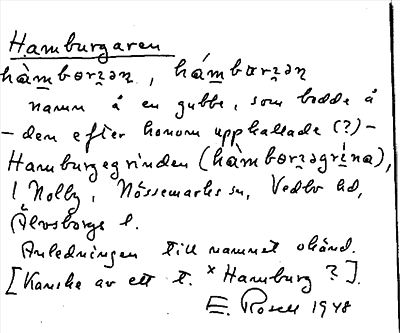 Hamburgaren
hàm̲bɵrzən, hám̲bɵrzən
namn å en gubbe, som bodde å
– den efter honom uppkallade (?) –
Hamburgegrinden (hàmbɵrzəgrína),
i Nolby, Nössemarks sn, Vedbo hd,
Älvsborgs l.
Anledningen till namnet okänd.
[Kanske av ett t. ˣHamburg?].
E. Rosell 1948